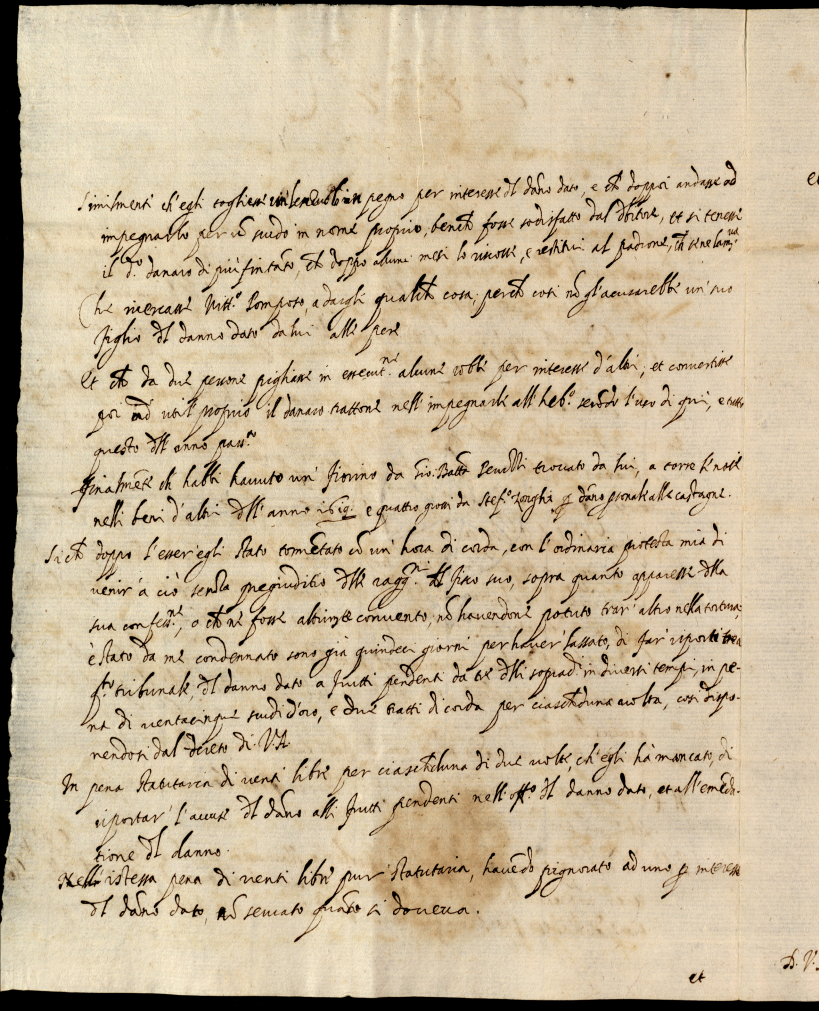 Similmenti ch'egli togliesse in pegno per interesse dl dano dato, e ch doppoi andasse ad
impegnarlo per un scudo in nome proprio, bench fosse sodisfatto dal dbitore, et si tenesse
il do. danaro di più fin tanto, ch doppo alcuni mesi lo riscosse, e restituì al padrone, ch se ne lam.va
Che ricercasse Vitt.o Pomposo, a dargli qualch cosa, perch cosi no gl'acusarebbe un' suo
figlio dl danno dato da lui alle pere
Et ch da due persone pigliasse in essecut.ne alcune robbe per interesse d'altri, et convertisse
poi ad util proprio il danaro trattone nell'impegnarle all'heb.o secondo l'uso di qui, e tutto
questo dll' anno pass.to
Finalmente ch habbi havuto un' fiorino da Gio. Batta trovato da lui, a torre le nose
nelli beni d'altri dll' anno 1619. e quattro grossi da Stef.o p dano alle castagne.
Sich doppo l'esser egli stato tormetato co un' hora di corda, con l'ordinaria protesta mia di
venir' a ciò senza pregiuditio dlle ragg.ni dl fisco suo, sopra quanto apparesse dlla
sua confess.ne, o ch ne fosse altrimte convento, no havendone potuto trar' altro nella tortura,
è stato da me condennato sono già quindeci giorni per haver lassato, di far' riporti
q.to tribunale, dl danno dato a frutti pendenti da tre dlli soprad.i in diversi tempi, in pe-
na di ventacinque scudi d'oro, e due tratti di corda per ciaschduna volta, cosi dispo-
nendosi dal dcreto di V.A.
In pena statutaria di venti libre per ciaschduna di due volte, ch'egli hà mancato, di
riportar' l'accuse dl dano alli frutti pendenti nell'off.o dl danno dato, et all'emeda-
tione dl danno.
Nella istessa pena di venti libre pur' statutaria, havedo pignorato ad uno p interesse
dl dano dato, no servato quato si doveva.
et
D. V.